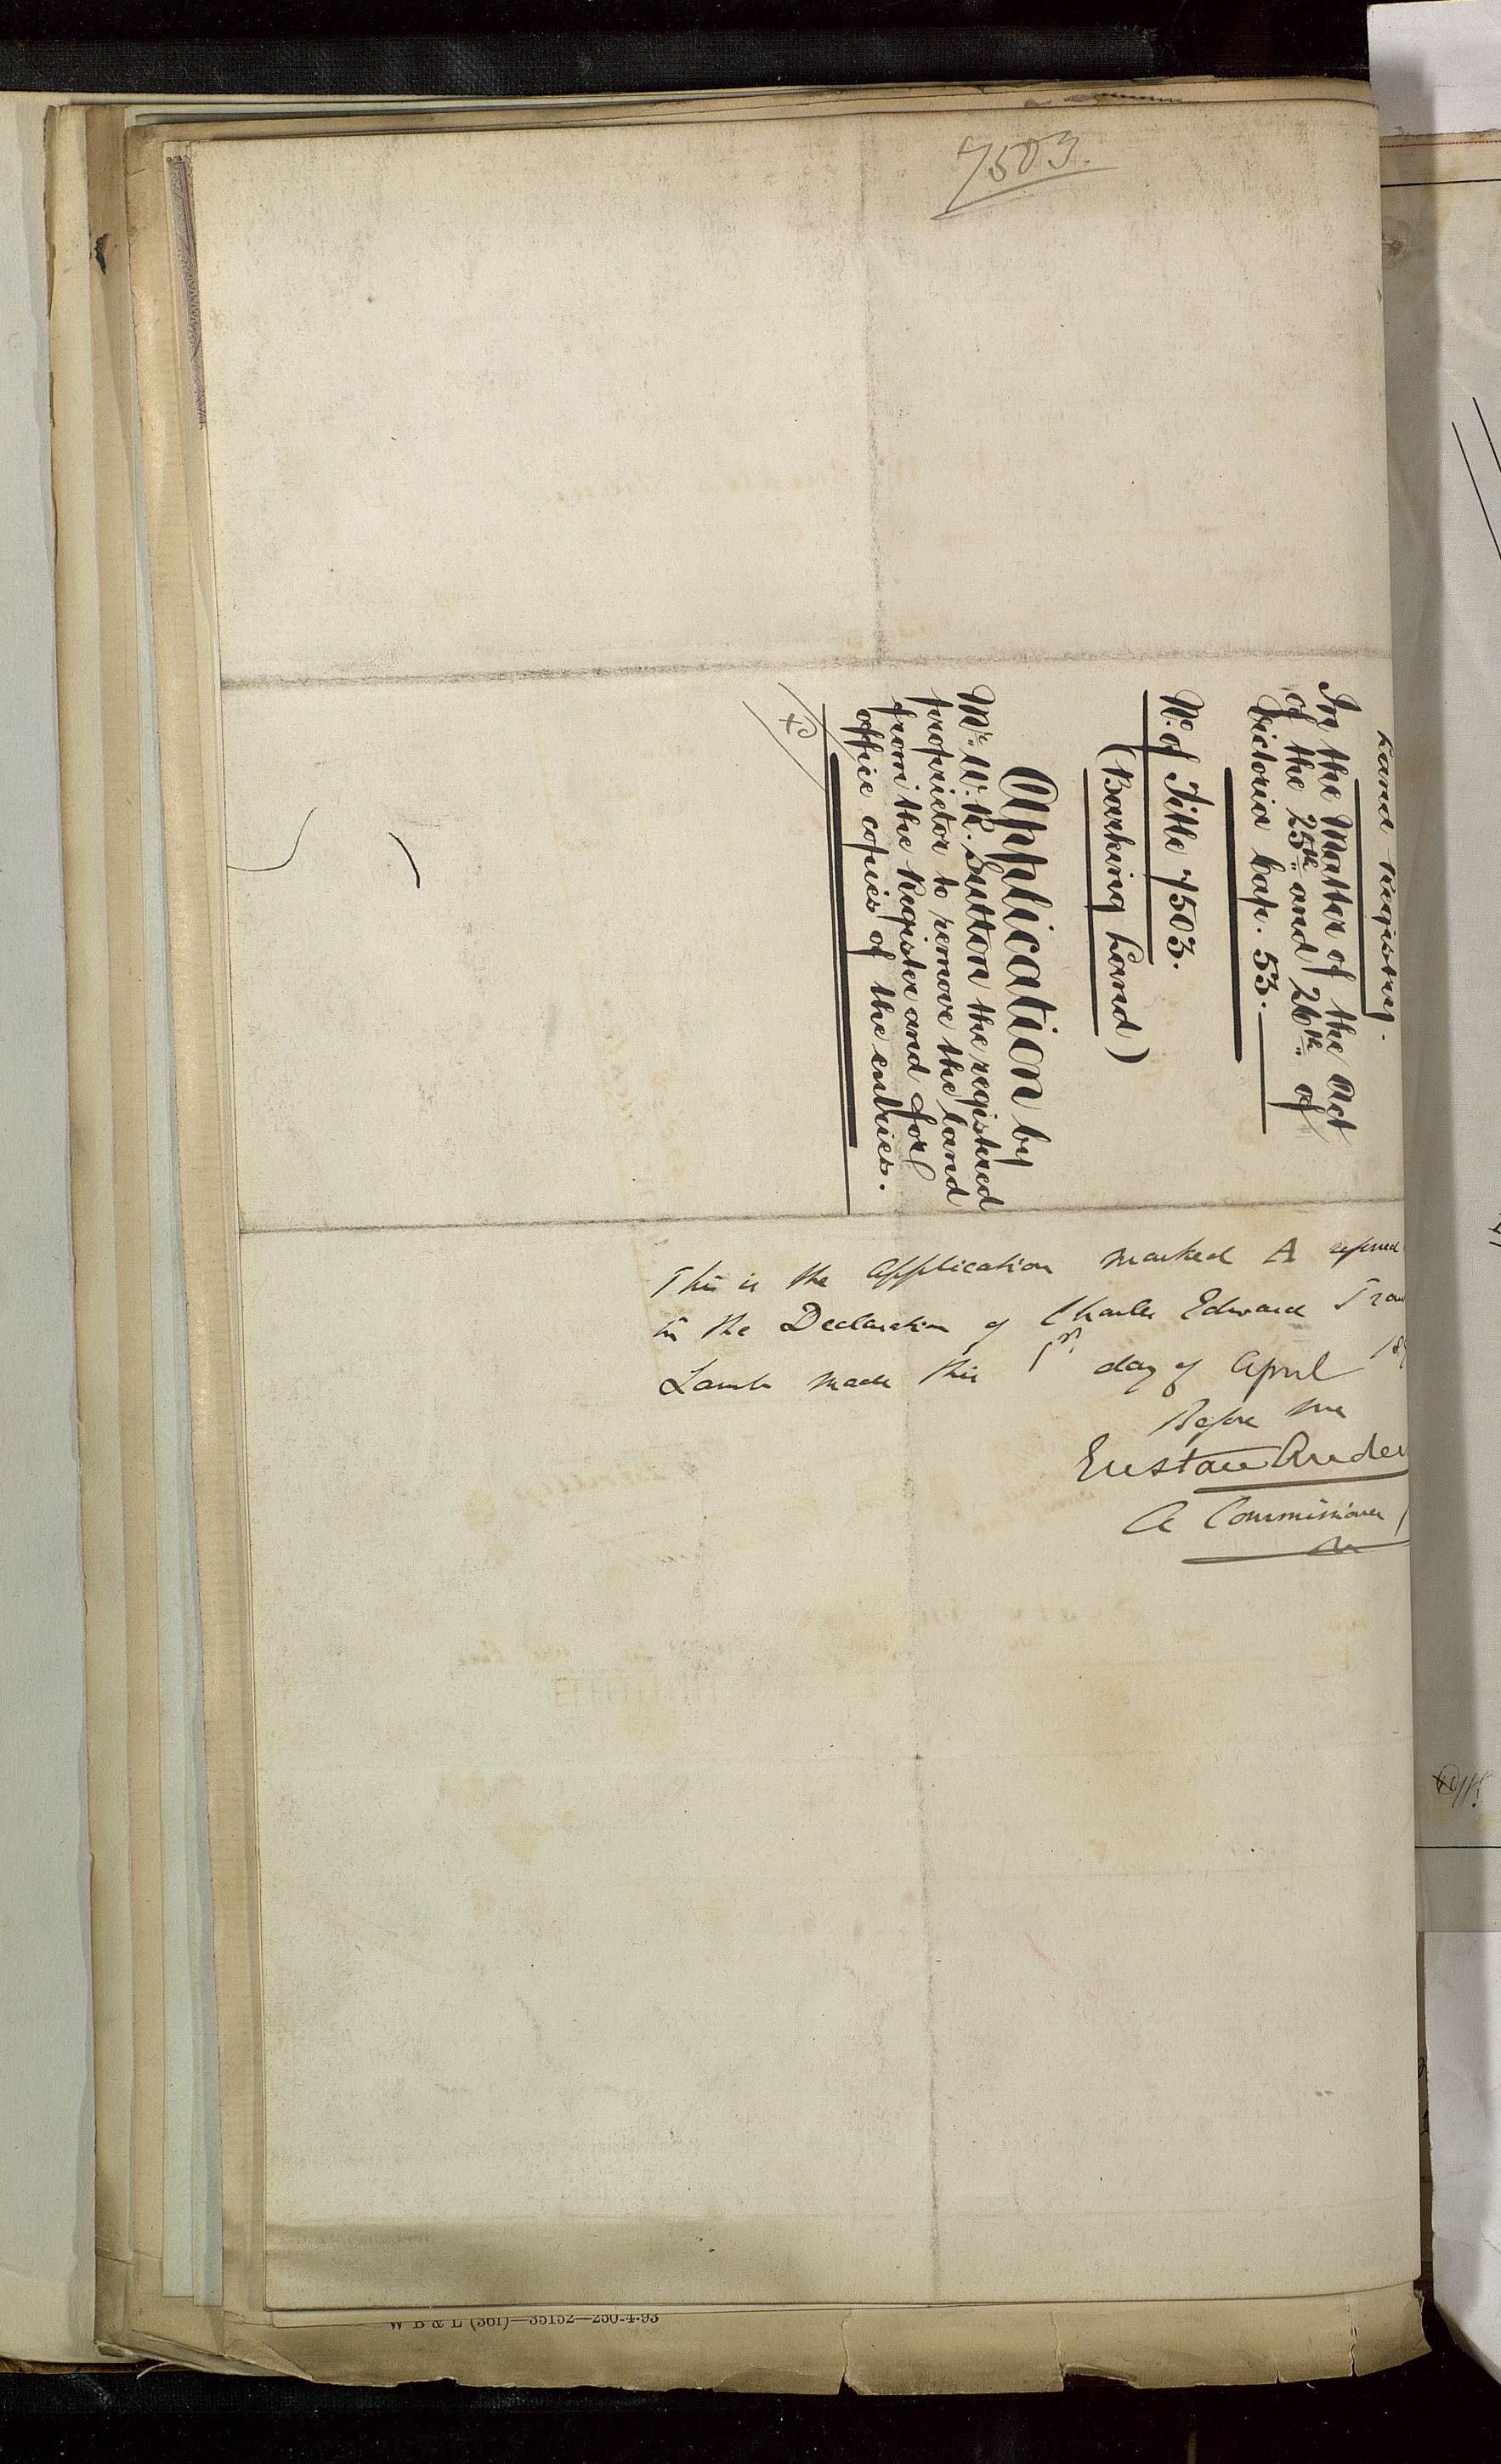 7503.
Land Registry.
In the Matter of the Act
of the 25th and 26th of
Victoria Cap. 53.
No. of Title 7503.
(Barking Land)
Application by
Mr. W. R. Sutton the registered
proprietor to remove the land
from the Register and for
office copies of the entries.
This is the application marked A referred
in the Declaration of Charles Edward
Lamb made this 1st day of April 18
Before me
A Commissioner
W B & L (361)—35152—250-4-93